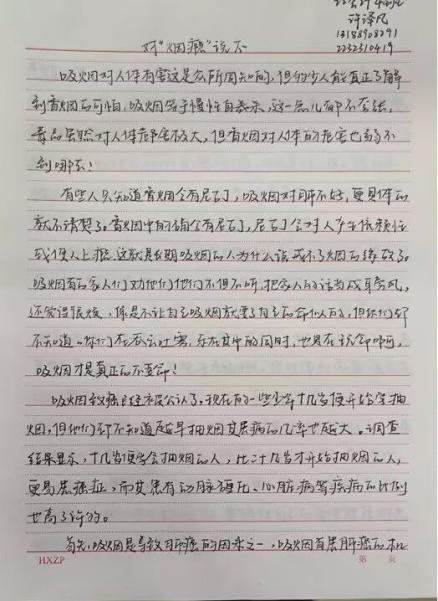 许泽凡
13158908291
2232310419
对“烟瘾”说不
吸烟对人体有害这是众所周知的,但多少人能真正了解
到香烟的可怕。吸烟等于慢性自杀,这一点儿都不夸张,
毒品虽然对人体危害极大,但香烟对人体的危害也弱不
到哪去!
有些人只知道香烟含有尼古丁,吸烟对肺不好,更具体的
就不清楚了。香烟中的确含有尼古丁,尼古丁会对人产生依赖性
或使人上瘾,这就是长期吸烟的人为什么说戒不了烟的缘故了。
吸烟者的家人们劝他们他们不但不听,把家人的话当成耳旁风,
还觉得很烦,像是不让自己吸烟就要了自己的命似的,但你们却
不知道,你们在吞云吐雾,乐在其中的同时,也是在玩命啊,
吸烟才是真正的不要命!
吸烟致癌已经被公认了,现在的一些少年十几岁便开始学抽
烟,但他们却不知道越早抽烟其患病的几率也越大。调查
结果显示,十几岁便学会抽烟的人,比二十几岁才开始抽烟的人,
更易患癌症,而其患有动脉硬化、心脏病等疾病的比例
也高了许多。
首先,吸烟是导致肺癌的因素之一,吸烟者患肺癌的机
HXZP
第 页